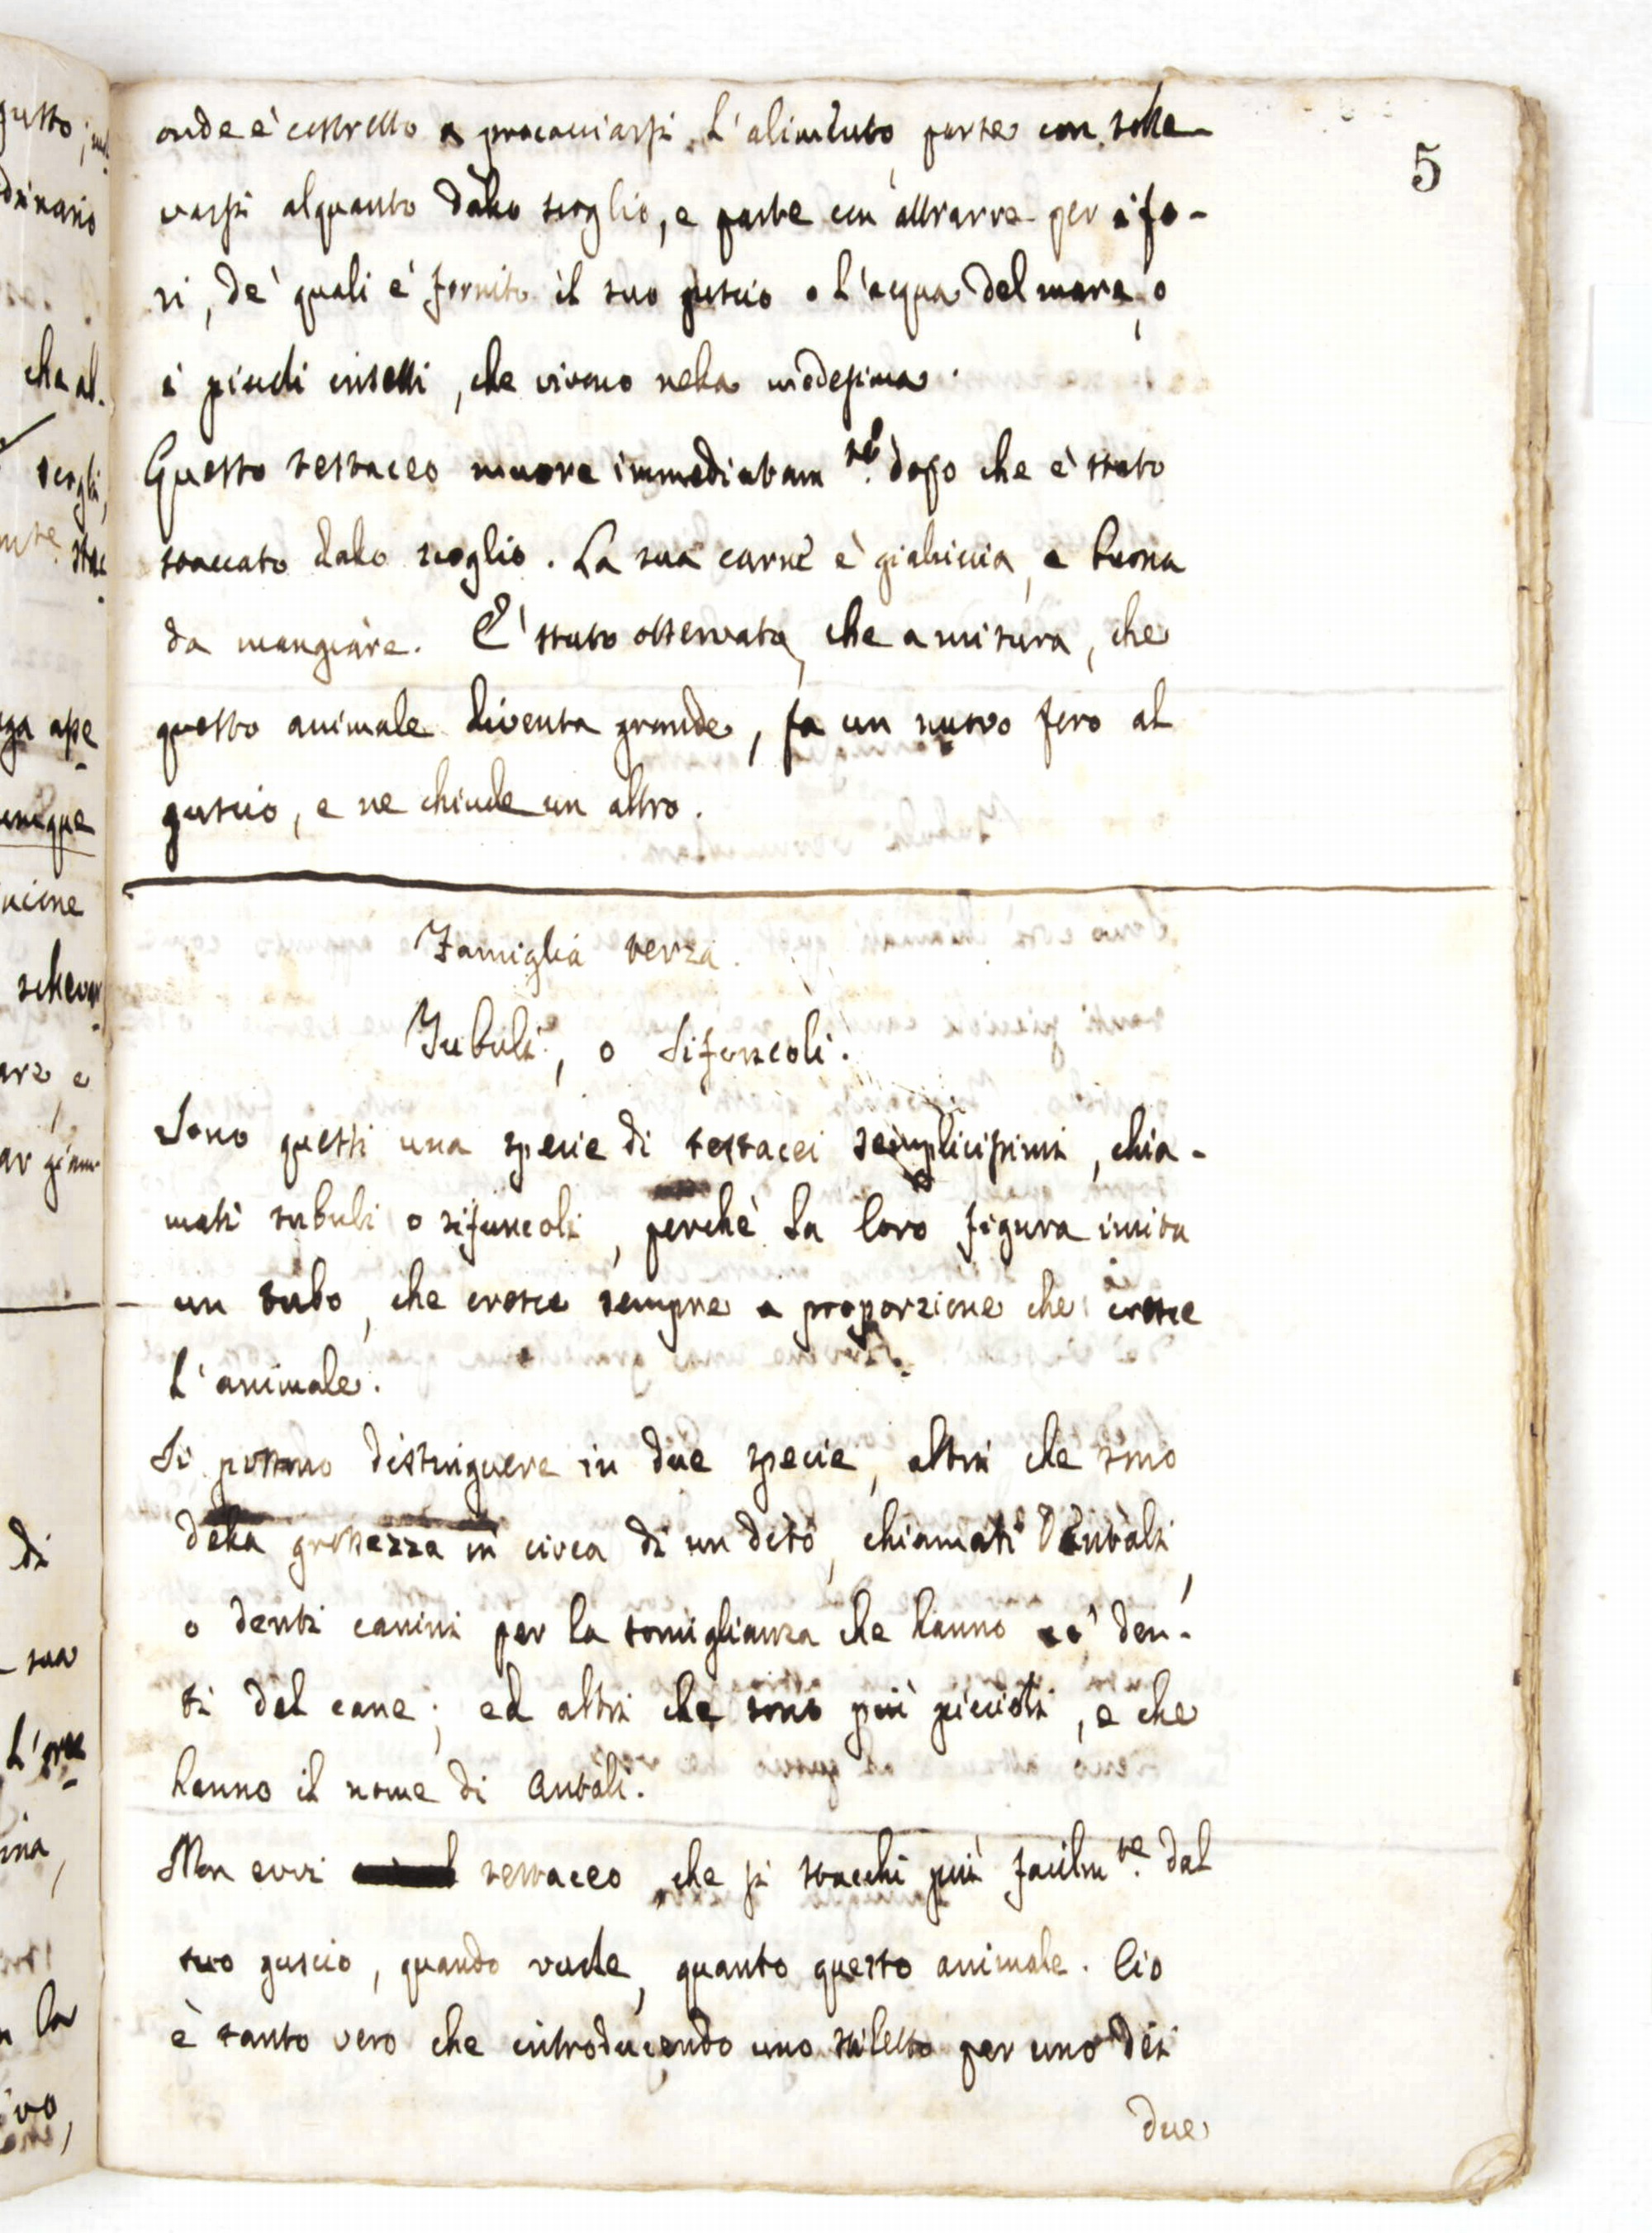 5
onde è costretto a procacciarsi l'alimento, parte con solle-
varsi alquanto dallo scoglio, e parte con attrarre per i fo-
ri, de' quali è fornito il suo guscio o l'acqua del mare, o
i piccoli insetti, che vivono nella medesima.
Questo testaceo muore immediatam.te dopo che è stato
staccato dallo scoglio. La sua carne è gialliccia, e buona
da mangiare. E' stato osservato, che a misura, che
questo animale diventa grande, fa un nuovo foro al
guscio, e ne chiude un altro.
Famiglia terza.
Tubuli, o Sifuncoli.
Sono questi una specie di testacei semplicissimi, chia-
mati tubuli o sifuncoli, perchè la loro figura imita
un tubo, che cresce sempre a proporzione che cresce
l'animale.
Si possono distinguere in due specie, altri che sono
della grossezza in circa di un dito, chiamati Dentali,
o denti canini per la somiglianza che hanno co' den-
ti del cane; ed altri che sono più piccioli, e che
hanno il nome di Antali.
Non evvi testaceo che si stacchi più facilm.te dal
suo guscio, quando vuole, quanto questo animale. Ciò
è tanto vero che introducendo uno stiletto per uno dei
due